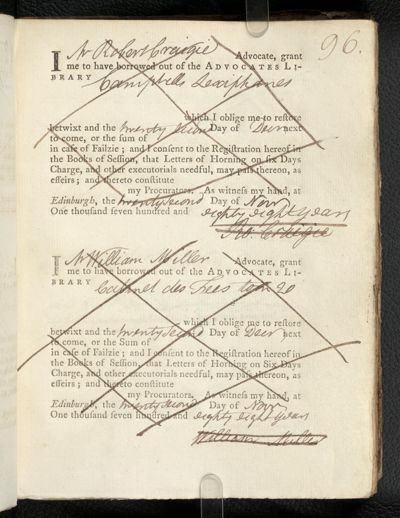 96.
I Mr Robert Craigie Advocate, grant
me to have borrowed out of the ADVOCATES LI-
BRARY Campbells Lexiphanes
which I oblige me to restore
betwixt and the twenty second Day of Decr next
to come, or the sum of
in case of Failzie; and I consent to the Registration hereof in
the Books of Session, that Letters of Horning on six Days
Charge, and other executorials needful, may pass thereon, as
effeirs; and thereto constitute
my Procurators. As witness my hand, at
Edinburgh, the twenty second Day of Novr
One thousand seven hundred and eighty eight years
Ro. Craigie
I Mr William Miller Advocate, grant
me to have borrowed out of the ADVOCATES LI-
BRARY Cabinet des Fees tom 20
which I oblige me to restore
betwixt and the twenty second Day of Decr next
to come, or the Sum of
in case of Failzie; and I consent to the Registration hereof in
the Books of Session, that Letters of Horning on Six Days
Charge, and other executorials needful, may pass thereon, as
effeirs; and thereto constitute
my Procurators. As witness my hand, at
Edinburgh, the twenty second Day of Novr
One thousand seven hundred and eighty eight years
William Miller